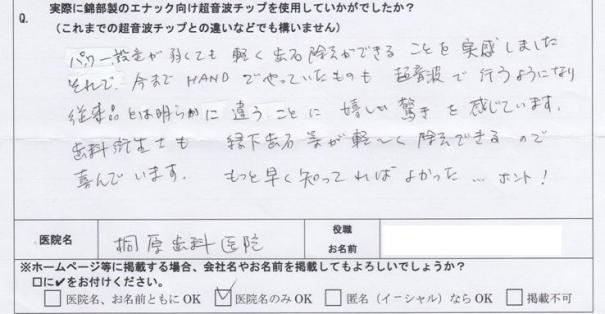 Q. 実際に錦部製のエナック向け超音波チップを使用していかがでしたか？
（これまでの超音波チップとの違いなどでも構いません）
パワー設定が弱くても 軽く歯石除去ができる ことを 実感しました
それで、今まで HANDでやっていたものも 超音波で 行うようになり
従来品とは明らかに 違う ことに 嬉しい驚き を 感じています。
歯科衛生士も 縁下歯石 等が軽〜く 除去できる ので
喜んでいます。 もっと早く知ってればよかった … ホント!
医院名 桐原歯科医院 役職
お名前
※ホームページ等に掲載する場合、会社名やお名前を掲載してもよろしいでしょうか？
口に✔をお付けください。
□ 医院名、お名前ともに OK ☑ 医院名のみ OK □ 匿名（イーシャル）なら OK □ 掲載不可